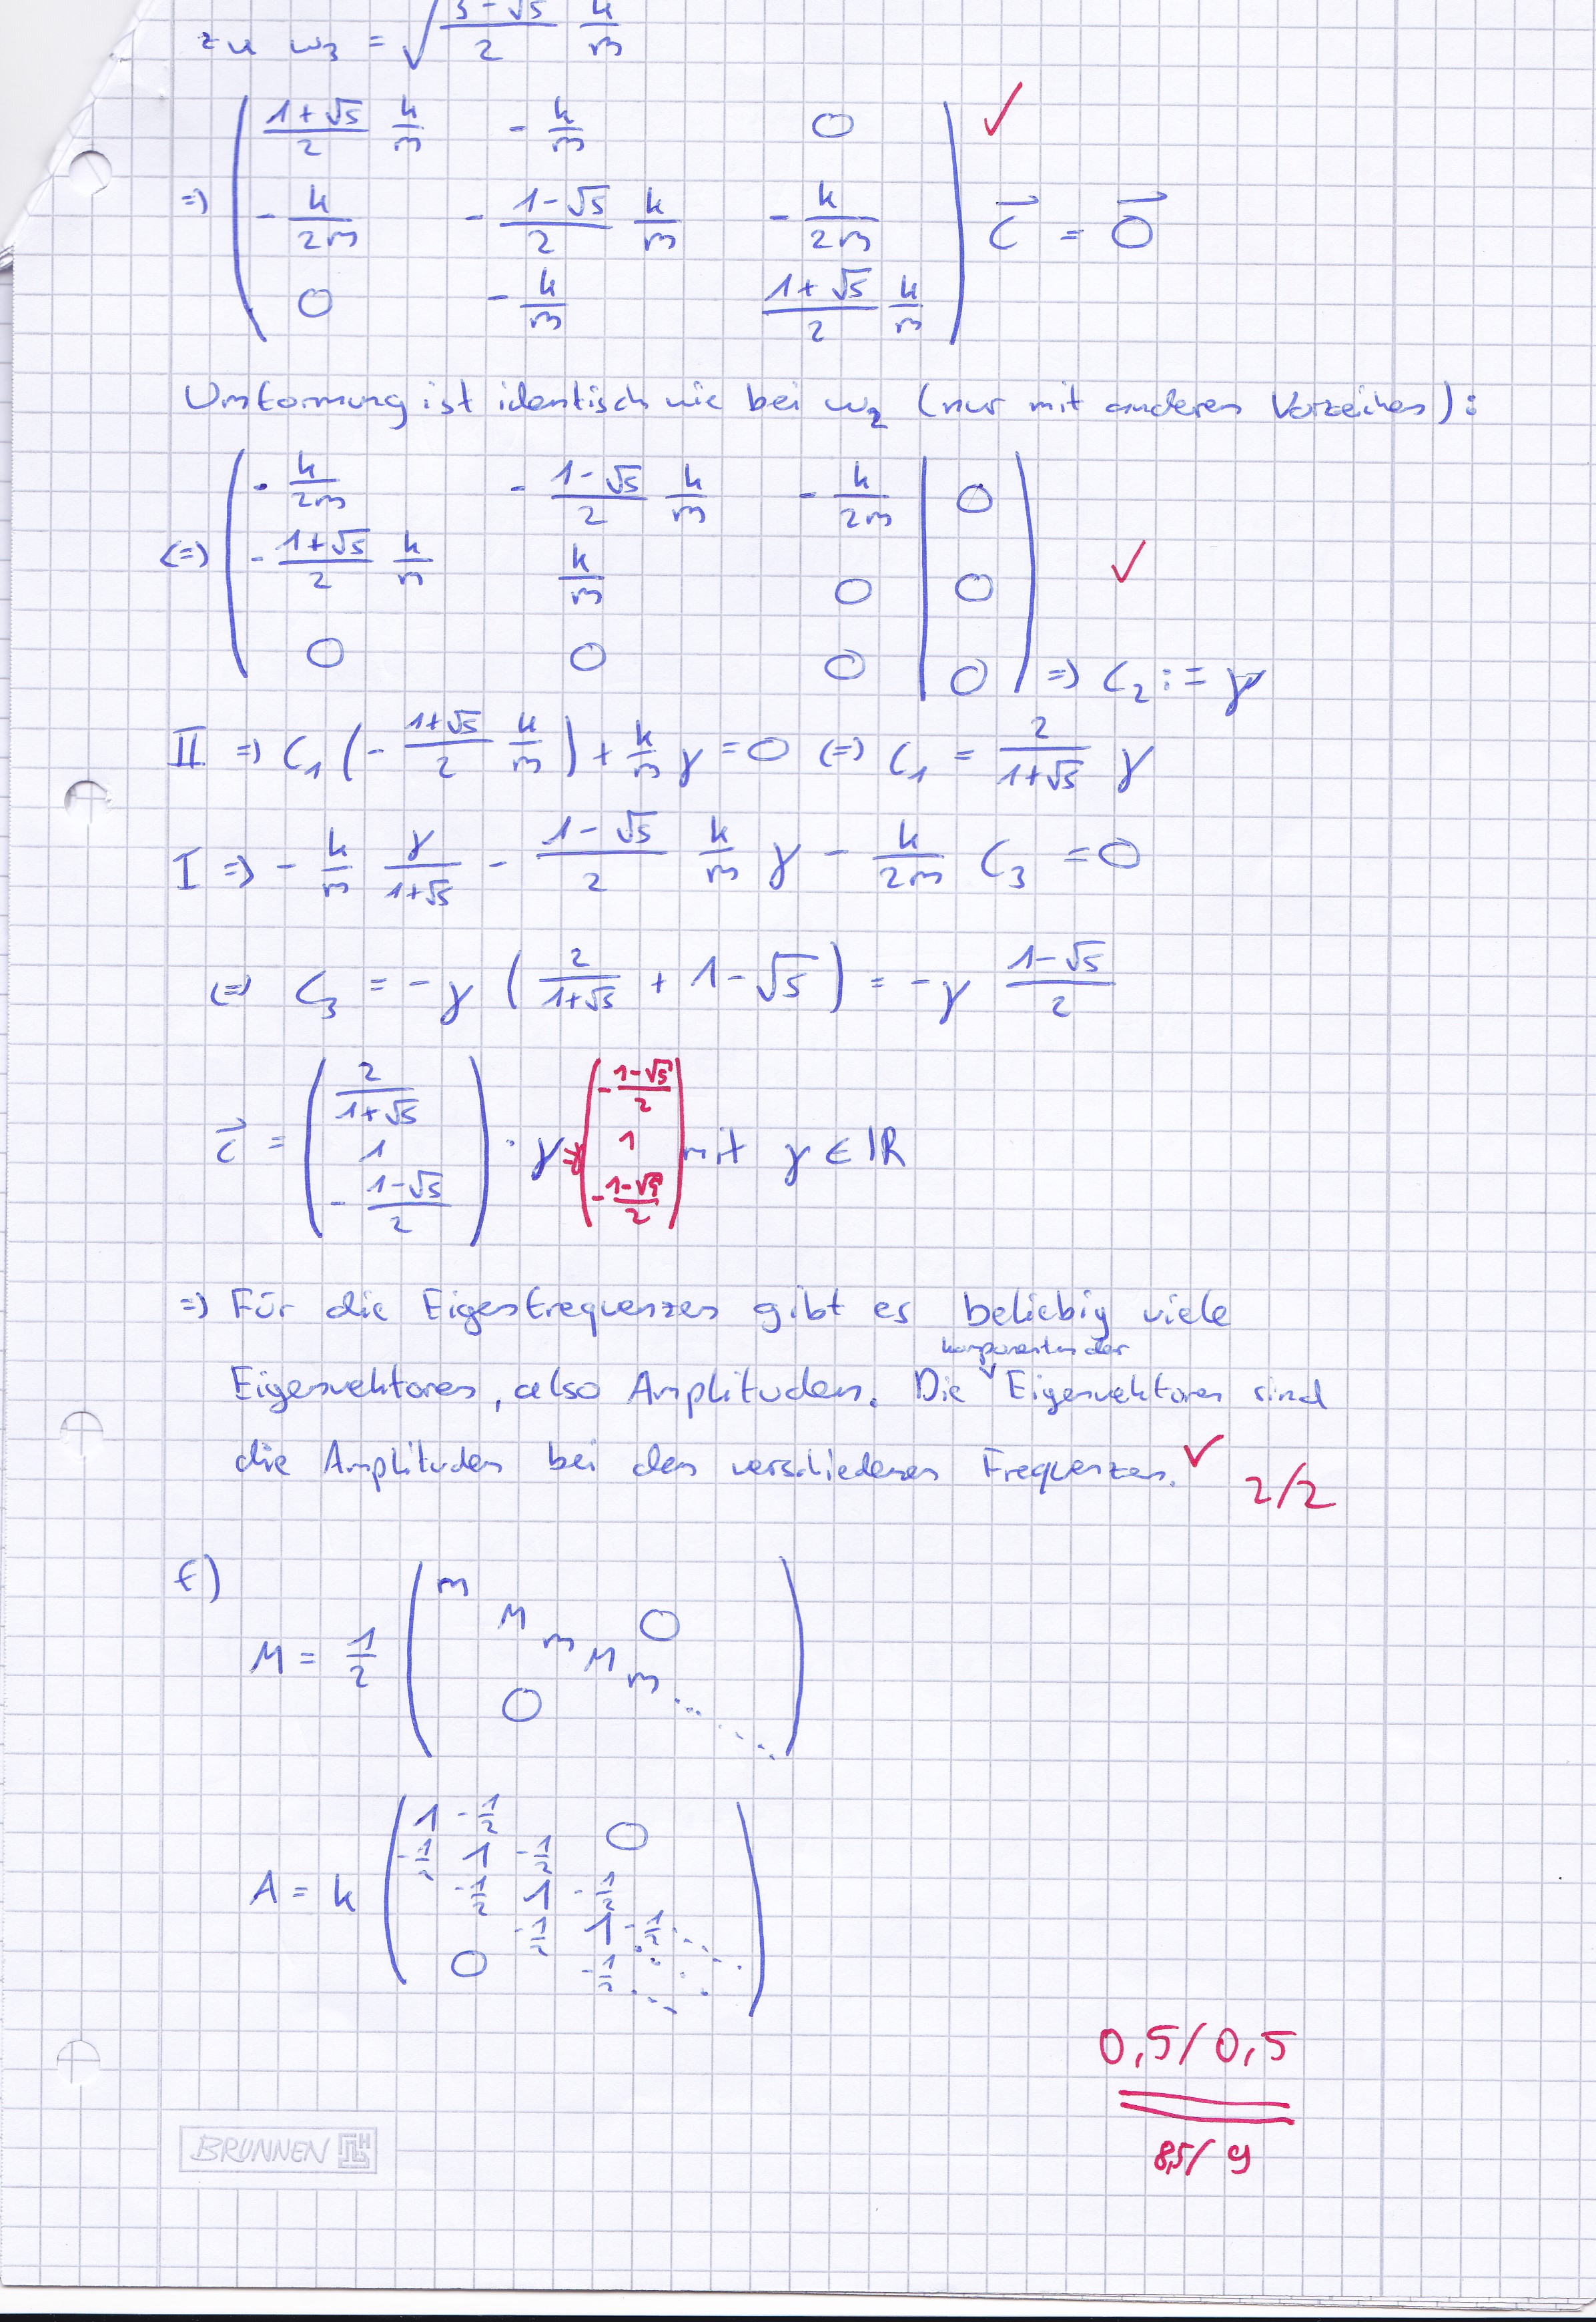 zu ω₃ = √((3-√5)/2 k/m)
=) ( (1+√5)/2 k/m   - k/m   0 ) ✓
( - k/2m   - (1-√5)/2 k/m   - k/2m ) c⃗ = 0⃗
( 0   - k/m   (1+√5)/2 k/m )
Umformung ist identisch wie bei ω₂ (nur mit anderen Vorzeichen):
(=) ( - k/2m   - (1-√5)/2 k/m   - k/2m | 0 )
( - (1+√5)/2 k/m   k/m   0 | 0 ) ✓
( 0   0   0 | 0 ) =) C₂ := γ
II =) C₁ (- (1+√5)/2 k/m) + k/m γ = 0 (=) C₁ = 2/(1+√5) γ
I =) - k/m γ/(1+√5) - (1-√5)/2 k/m γ - k/2m C₃ = 0
(=) C₃ = - γ ( 2/(1+√5) + 1-√5 ) = - γ (1-√5)/2
c⃗ = ( 2/(1+√5)   1   - (1-√5)/2 ) · γ = γ ( - (1-√5)/2   1   - (1-√5)/2 ) mit γ ∈ ℝ
=) Für die Eigenfrequenzen gibt es beliebig viele
komponenten der
Eigenvektoren, also Amplituden. Die Eigenvektoren sind
die Amplituden bei den verschiedenen Frequenzen. ✓ 2/2
f)
M = 1/2 ( m M m M m ... 0 0 )
A = k ( 1 -1/2 0
-1/2 1 -1/2
-1/2 1 -1/2
-1/2 1 -1/2 ...
0 -1/2 ... )
0,5/0,5
8,5/9
BRUNNEN